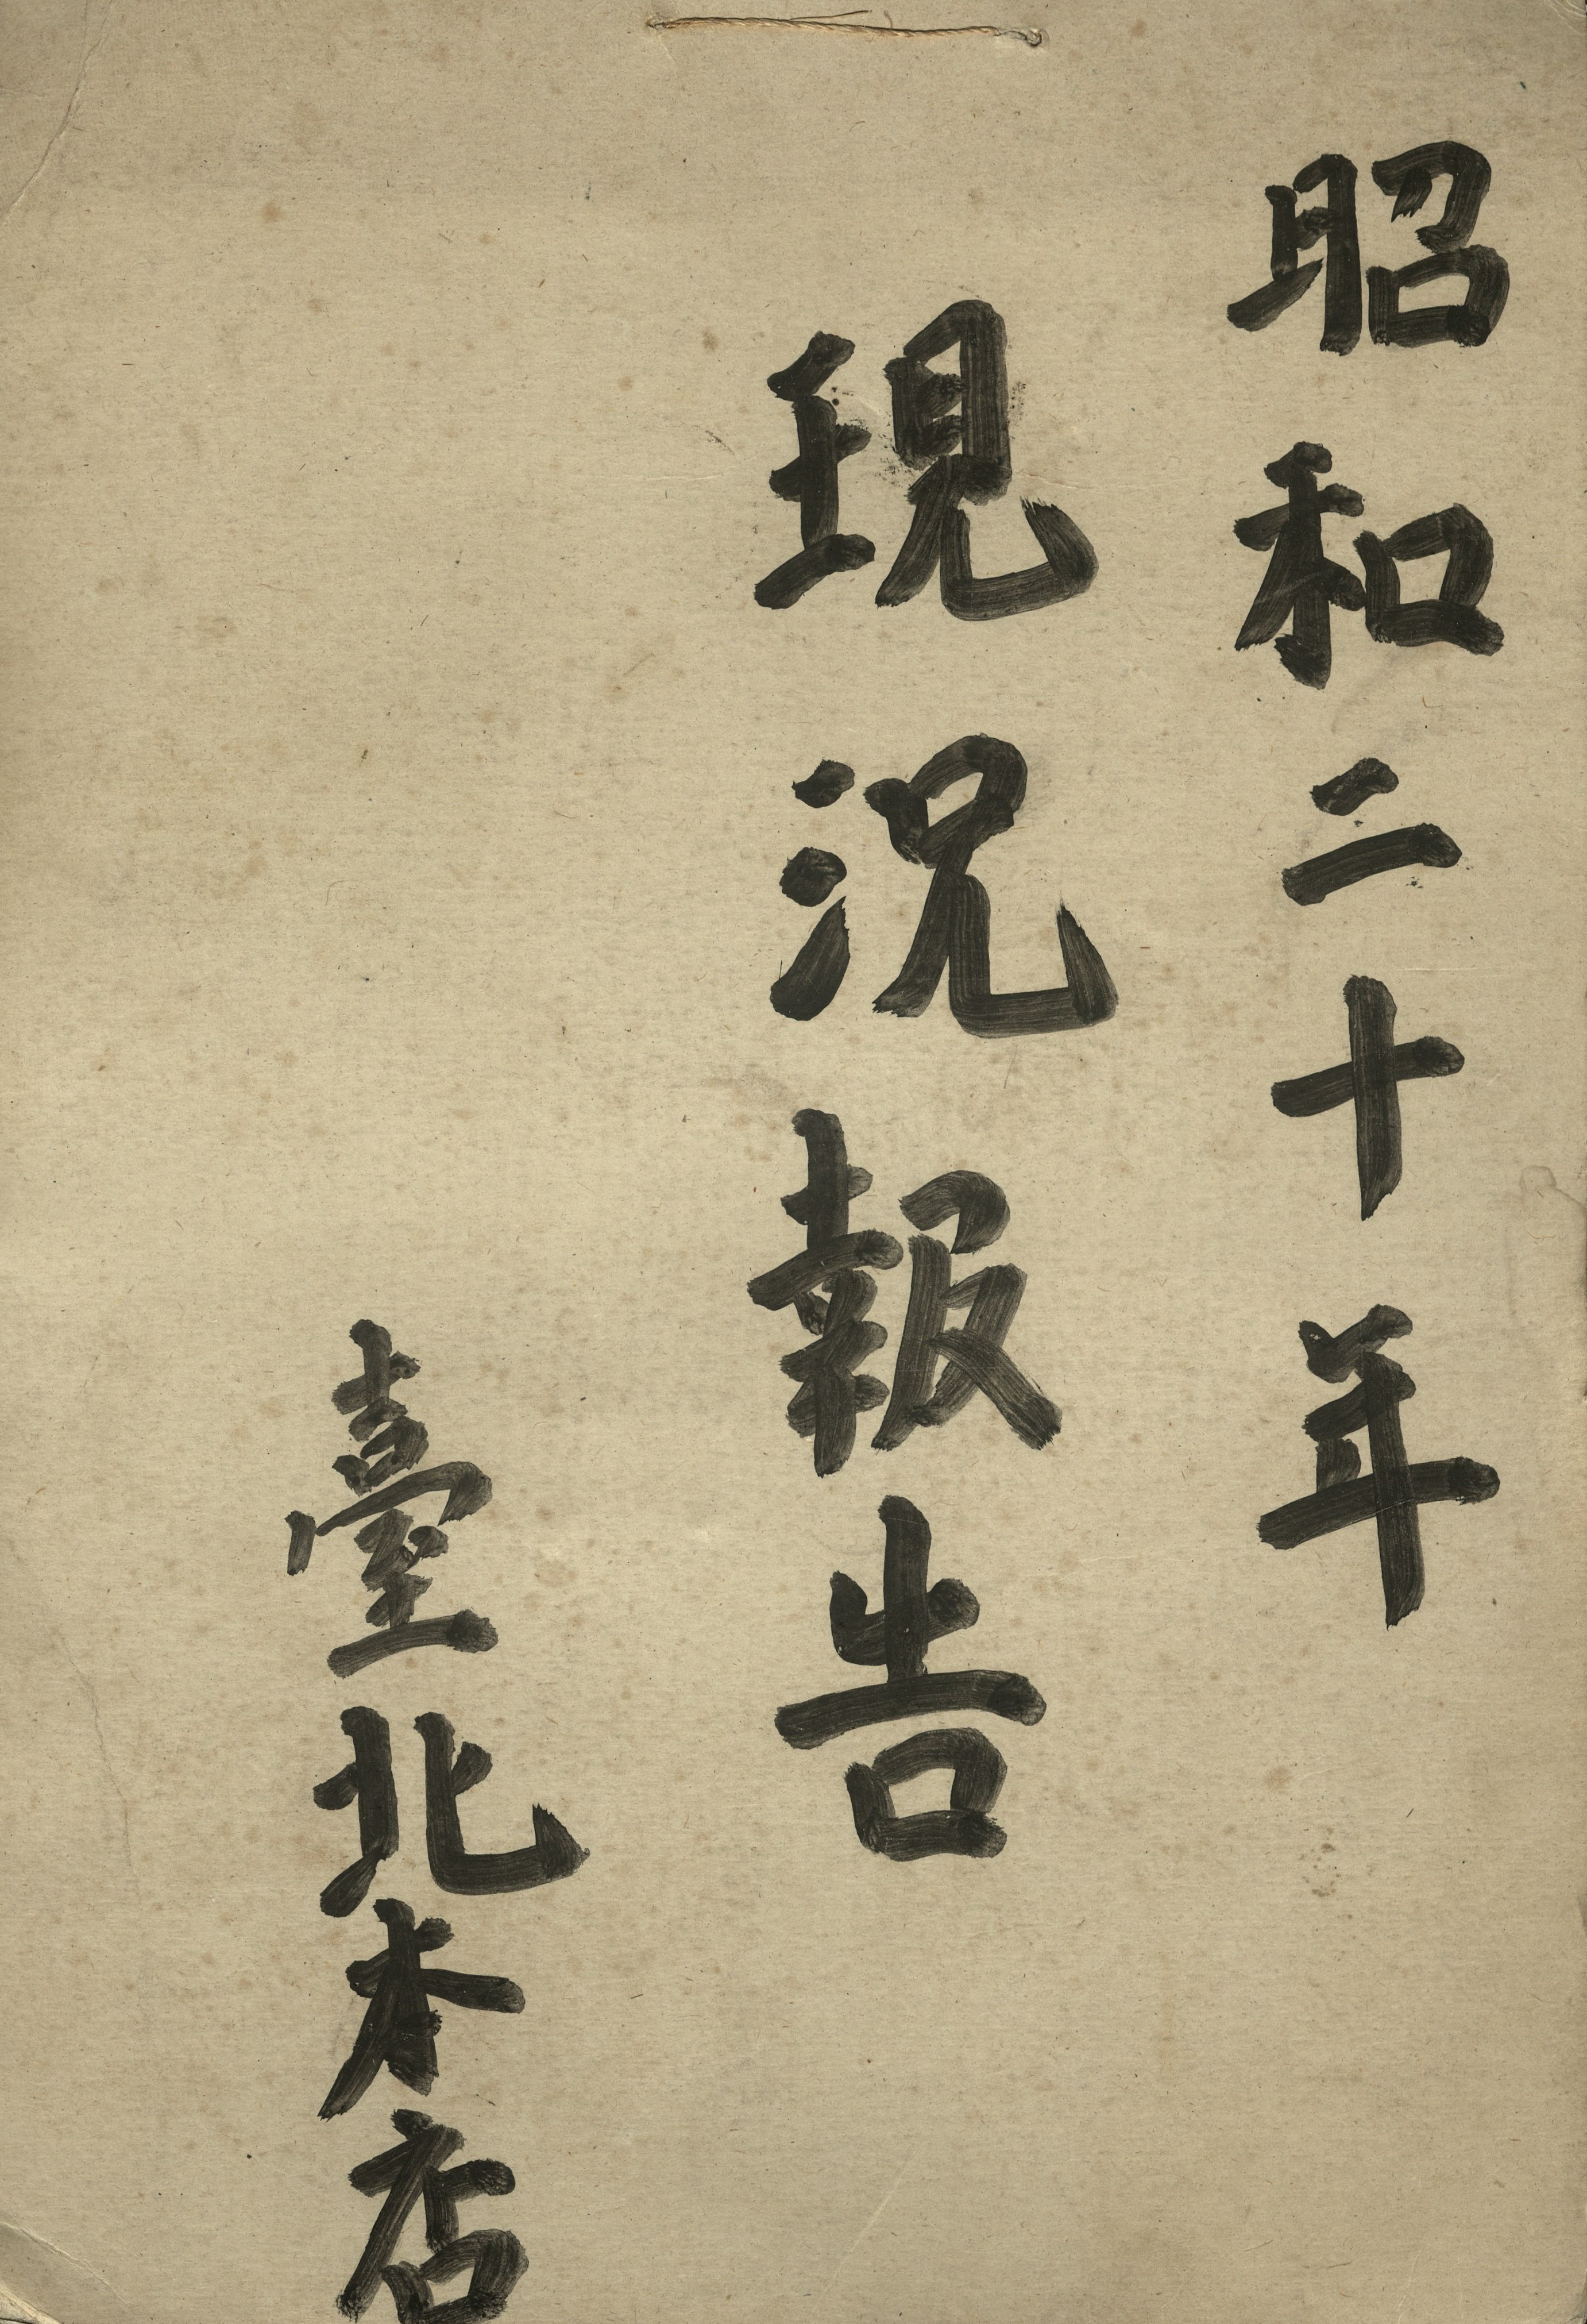 昭和二十年
現況報告
臺北本店